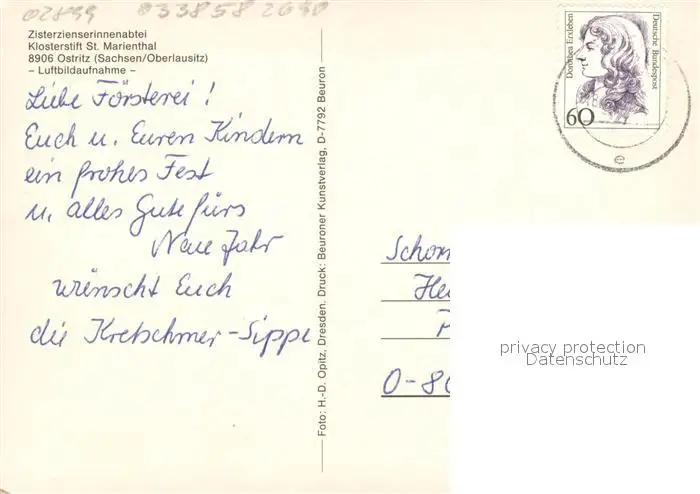 02899 033858 2690
Zisterzienserinnenabtei
Klosterstift St. Marienthal
8906 Ostritz (Sachsen/Oberlausitz)
– Luftbildaufnahme –
Liebe Försterei !
Euch u. Euren Kindern
ein frohes Fest
u. alles Gute fürs
Neue Jahr
wünscht Euch
die Kretschmer-Sippe
Foto: H.-D. Opitz, Dresden. Druck: Beuroner Kunstverlag, D-7792 Beuron
Dorothea Erxleben
Deutsche Bundespost
60
e
Schom
He
P
O-80
privacy protection
Datenschutz